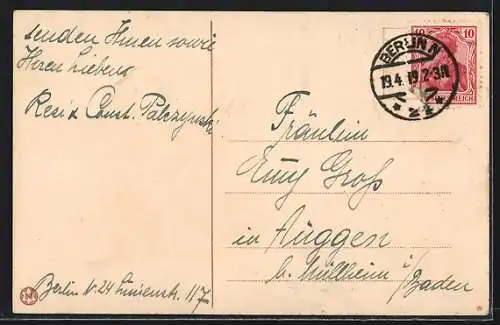 senden Ihnen sowie
Ihren Lieben
Resi & Const. Palczynski
Berlin N. 24 Linienstr. 117
BERLIN N
19.4.19. 2-3N
* 24 *
10 10
REICH
Fräulein
Emy Groß
in Auggen
b. Müllheim i/
Baden